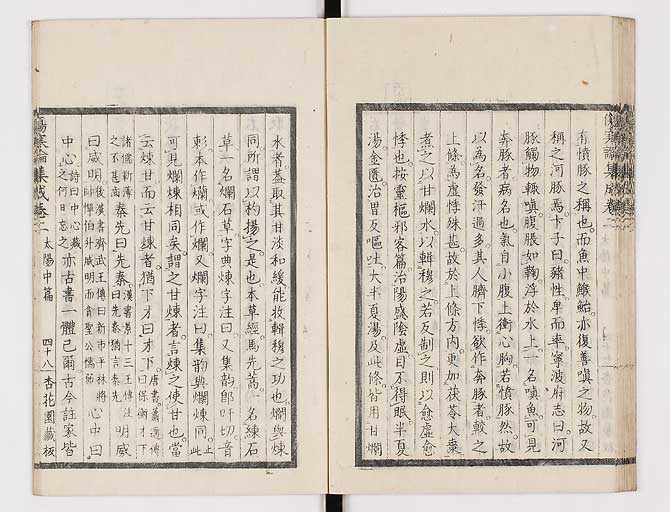 有憤豚之稱也而魚中鯸鮐亦復善嗔之物故又
稱之河豚焉卞子曰豬性卑而率寧波府志曰河
豚觸物輒嗔腹脹如鞠浮於水上一名嗔魚可見
奔豚者病名也氣自小腹上衝心胸若憤豚然故
以為名發汗過多其人臍下悸欲作奔豚者較之
上條為虛悸殊甚故於上條方內更加茯苓大棗
煮之以甘爛水以輯穆之若反制之則以愈虛愈
悸也按靈樞邪客篇治陽盛陰虛目不得眠半夏
湯金匱治胃反嘔吐大半夏湯及此條皆用甘爛
水者蓋取其甘淡和緩能妝輯穆之功也爛與煉
同所謂以杓揚之是也本草經馬先蒿一名練石
草一名爛石草字典煉字注曰又集韵郎旰切音
爛本作爛或作爛又爛字注曰集韵與爛煉同止此
可見爛煉相同矣謂之甘煉者言煉之使甘也當
云煉甘而云甘煉者猶下才曰才下唐書蕭遘傳曰保衡才下
諸儒靳薄之不甚齒秦先曰先秦漢書景十三王傳注曰先秦猶言秦先明威
曰威明後漢書齊武王傳曰新市平林將帥憚伯升威明而貪聖公懦弱心中曰
中心詩曰中心藏之何日忘之亦古書一體已爾古今註家皆
傷寒論集成卷二 太陽中篇 四十八 杏花園藏板